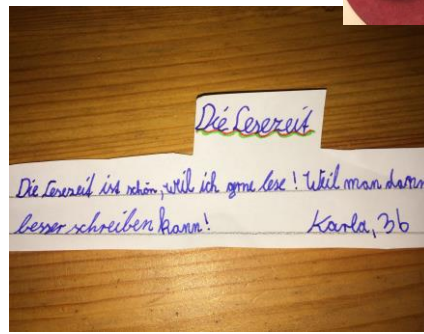 Die Lesezeit
Die Lesezeit ist schön, weil ich gerne lese! Weil man dann
besser schreiben kann! Karla, 3b